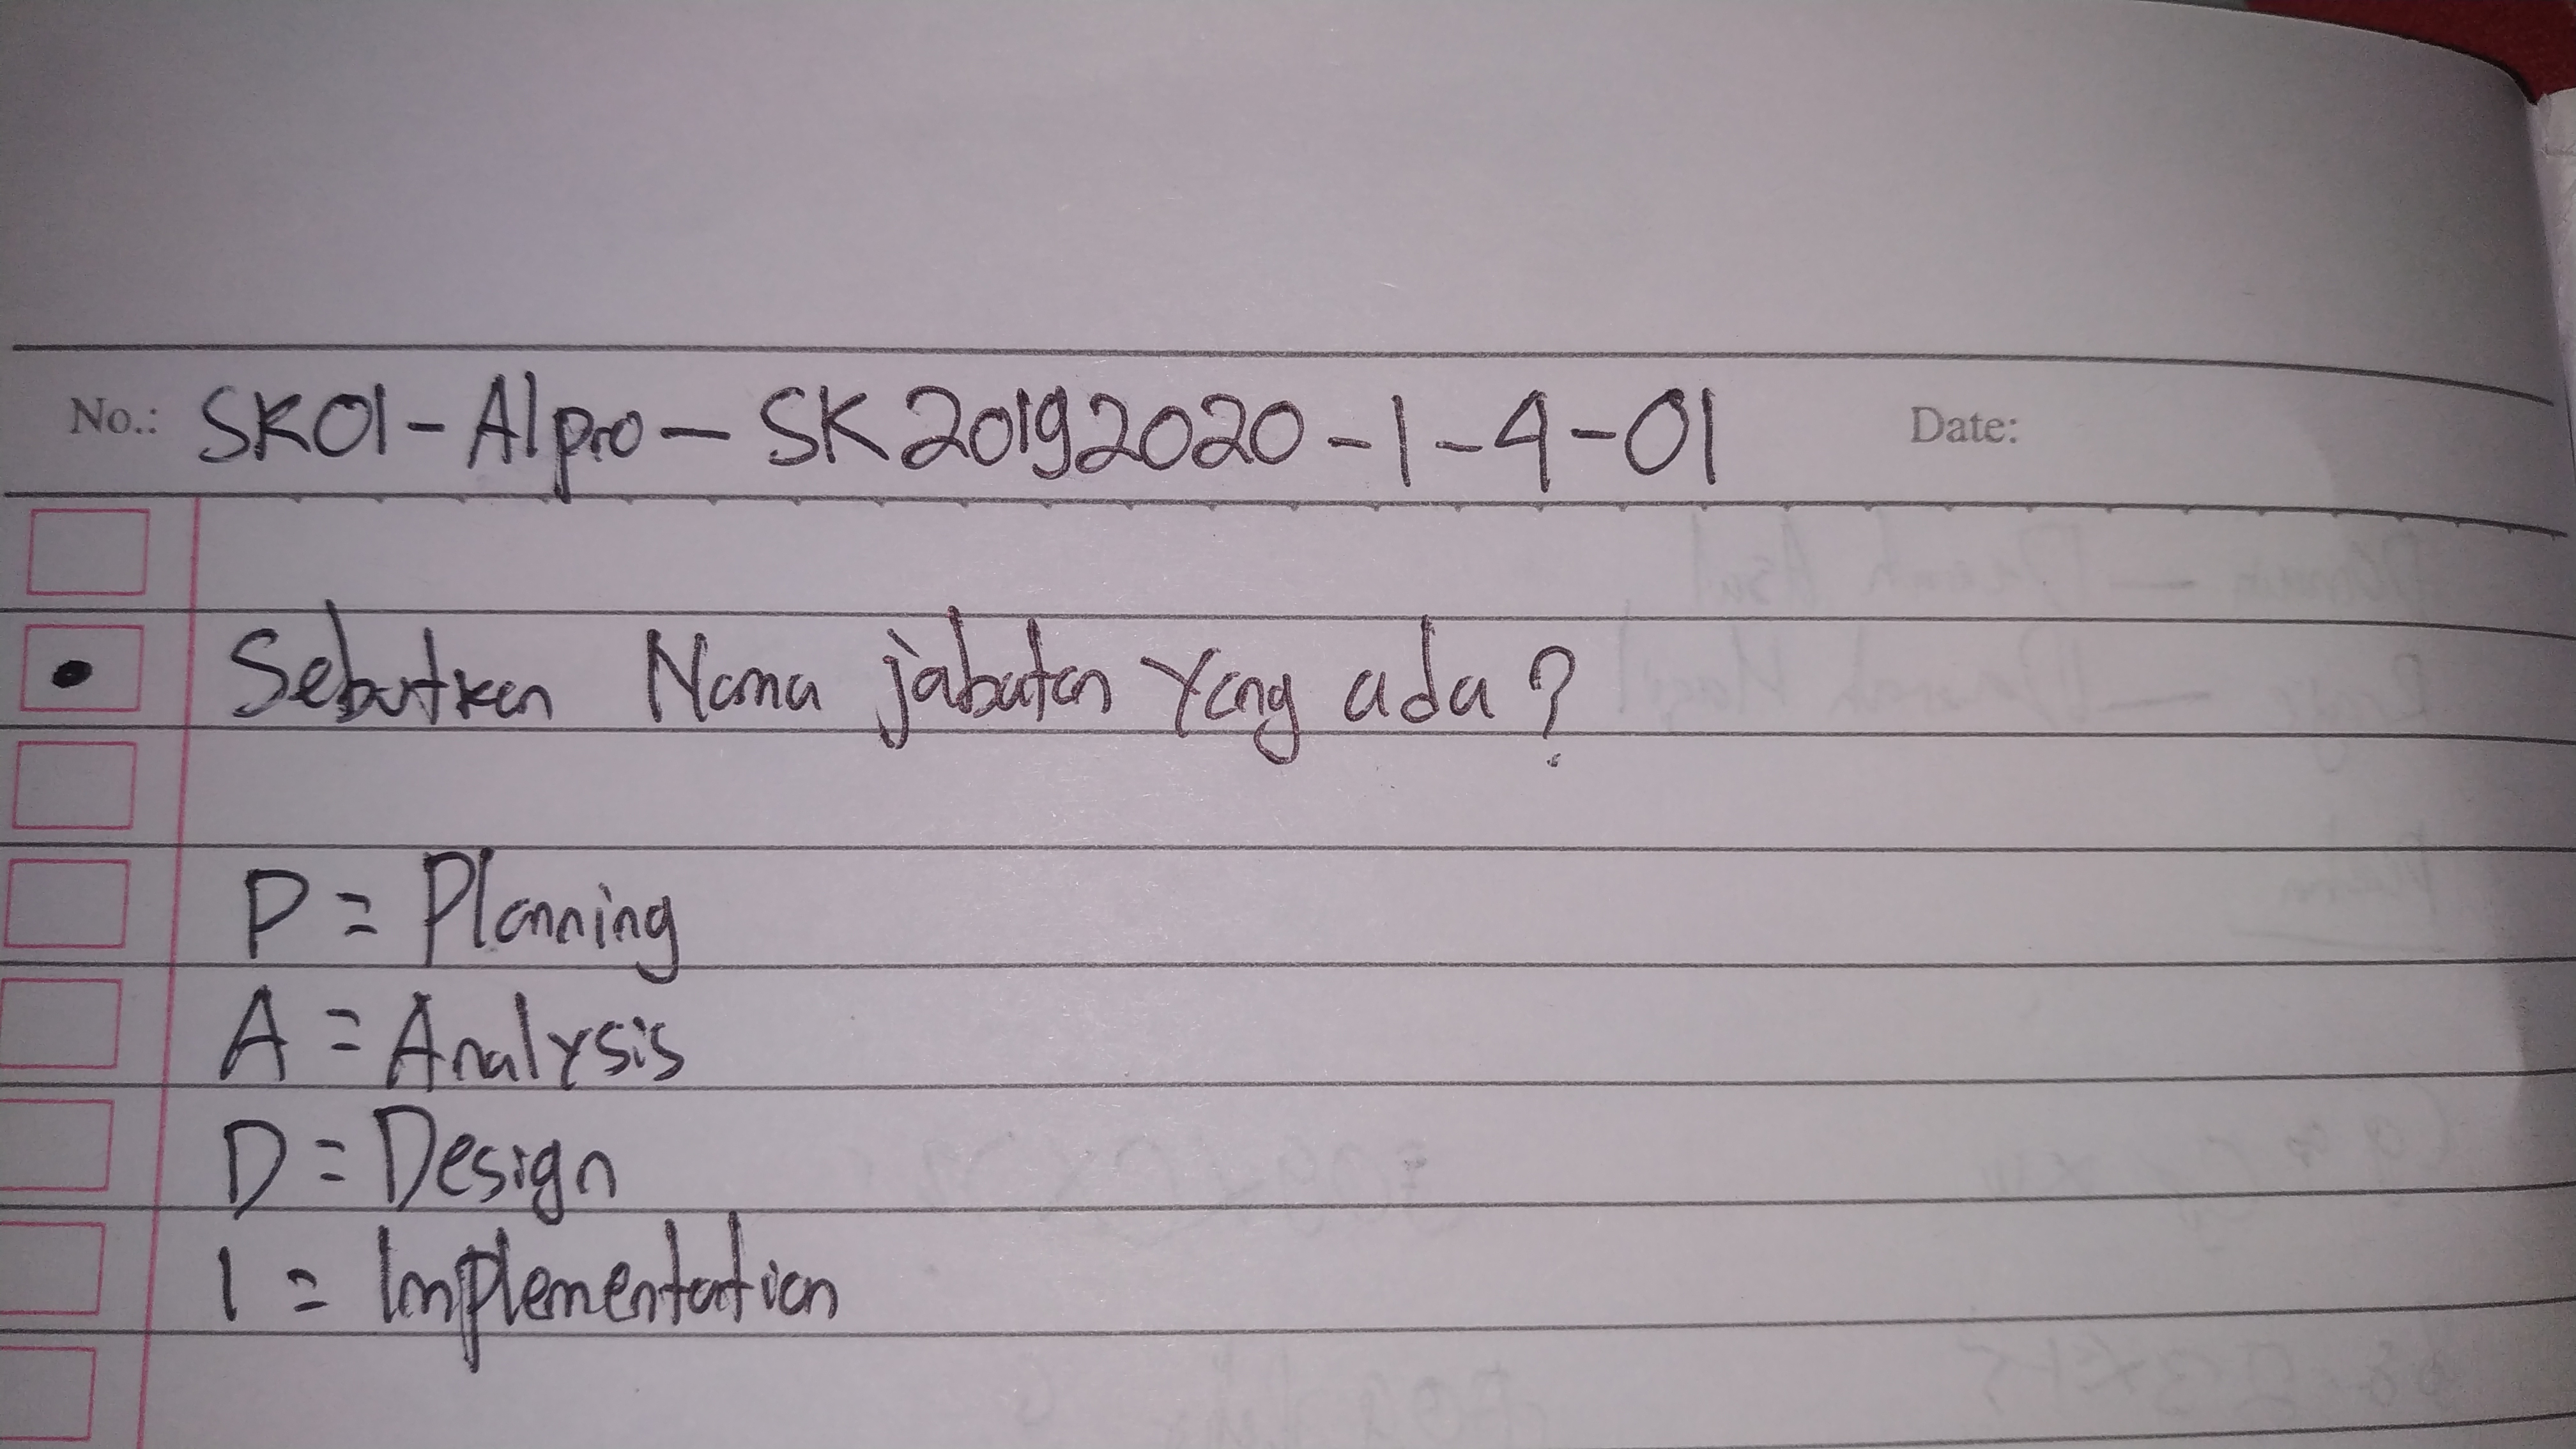 No.: SK01-Alpro-SK20192020-1-4-01 Date:
Sebutkan Nama jabatan Yang ada?
P = Planning
A = Analysis
D = Design
I = Implementation